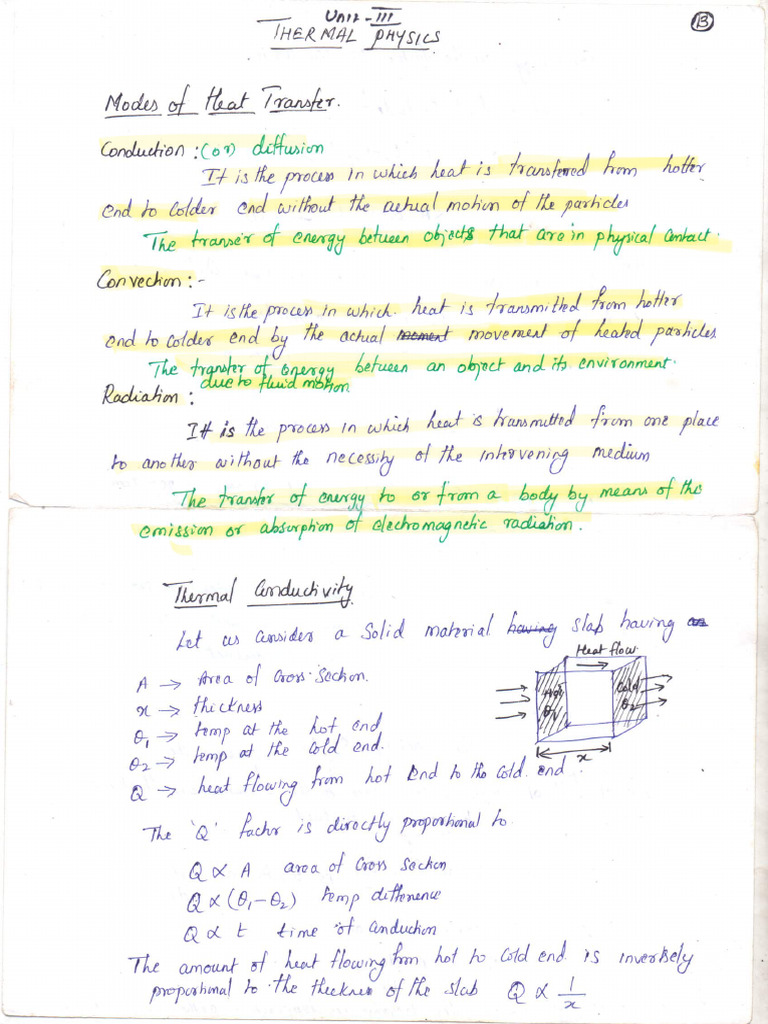 Unit-III
THERMAL PHYSICS
13
Modes of Heat Transfer.
Conduction : (or) diffusion
It is the process in which heat is transferred from hotter
end to colder end without the actual motion of the particles
The transer of energy between objects that are in physical contact.
Convection :-
It is the process in which. heat is transmitted from hotter
end to colder end by the actual moment movement of heated particles.
The transfer of energy between an object and its environment.
due to fluid motion.
Radiation :
It is the process in which heat is transmitted from one place
to another without the necessity of the intervening medium
The transfer of energy to or from a body by means of the
emission or absorption of electromagnetic radiation.
Thermal Conductivity
Let us consider a Solid material having slab having
Heat flow.
A → Area of Cross-Section.
Hot Cold
x → thickness
θ1 θ2
θ1 → temp at the hot end
θ2 → temp at the cold end.
x
Q → heat flowing from hot end to the cold. end.
The 'Q' factor is directly proportional to
Q ∝ A area of Cross Section
Q ∝ (θ1-θ2) temp difference
Q ∝ t time of conduction
The amount of heat flowing from hot to cold end is inversely
proportional to the thickness of the slab Q ∝ 1/x